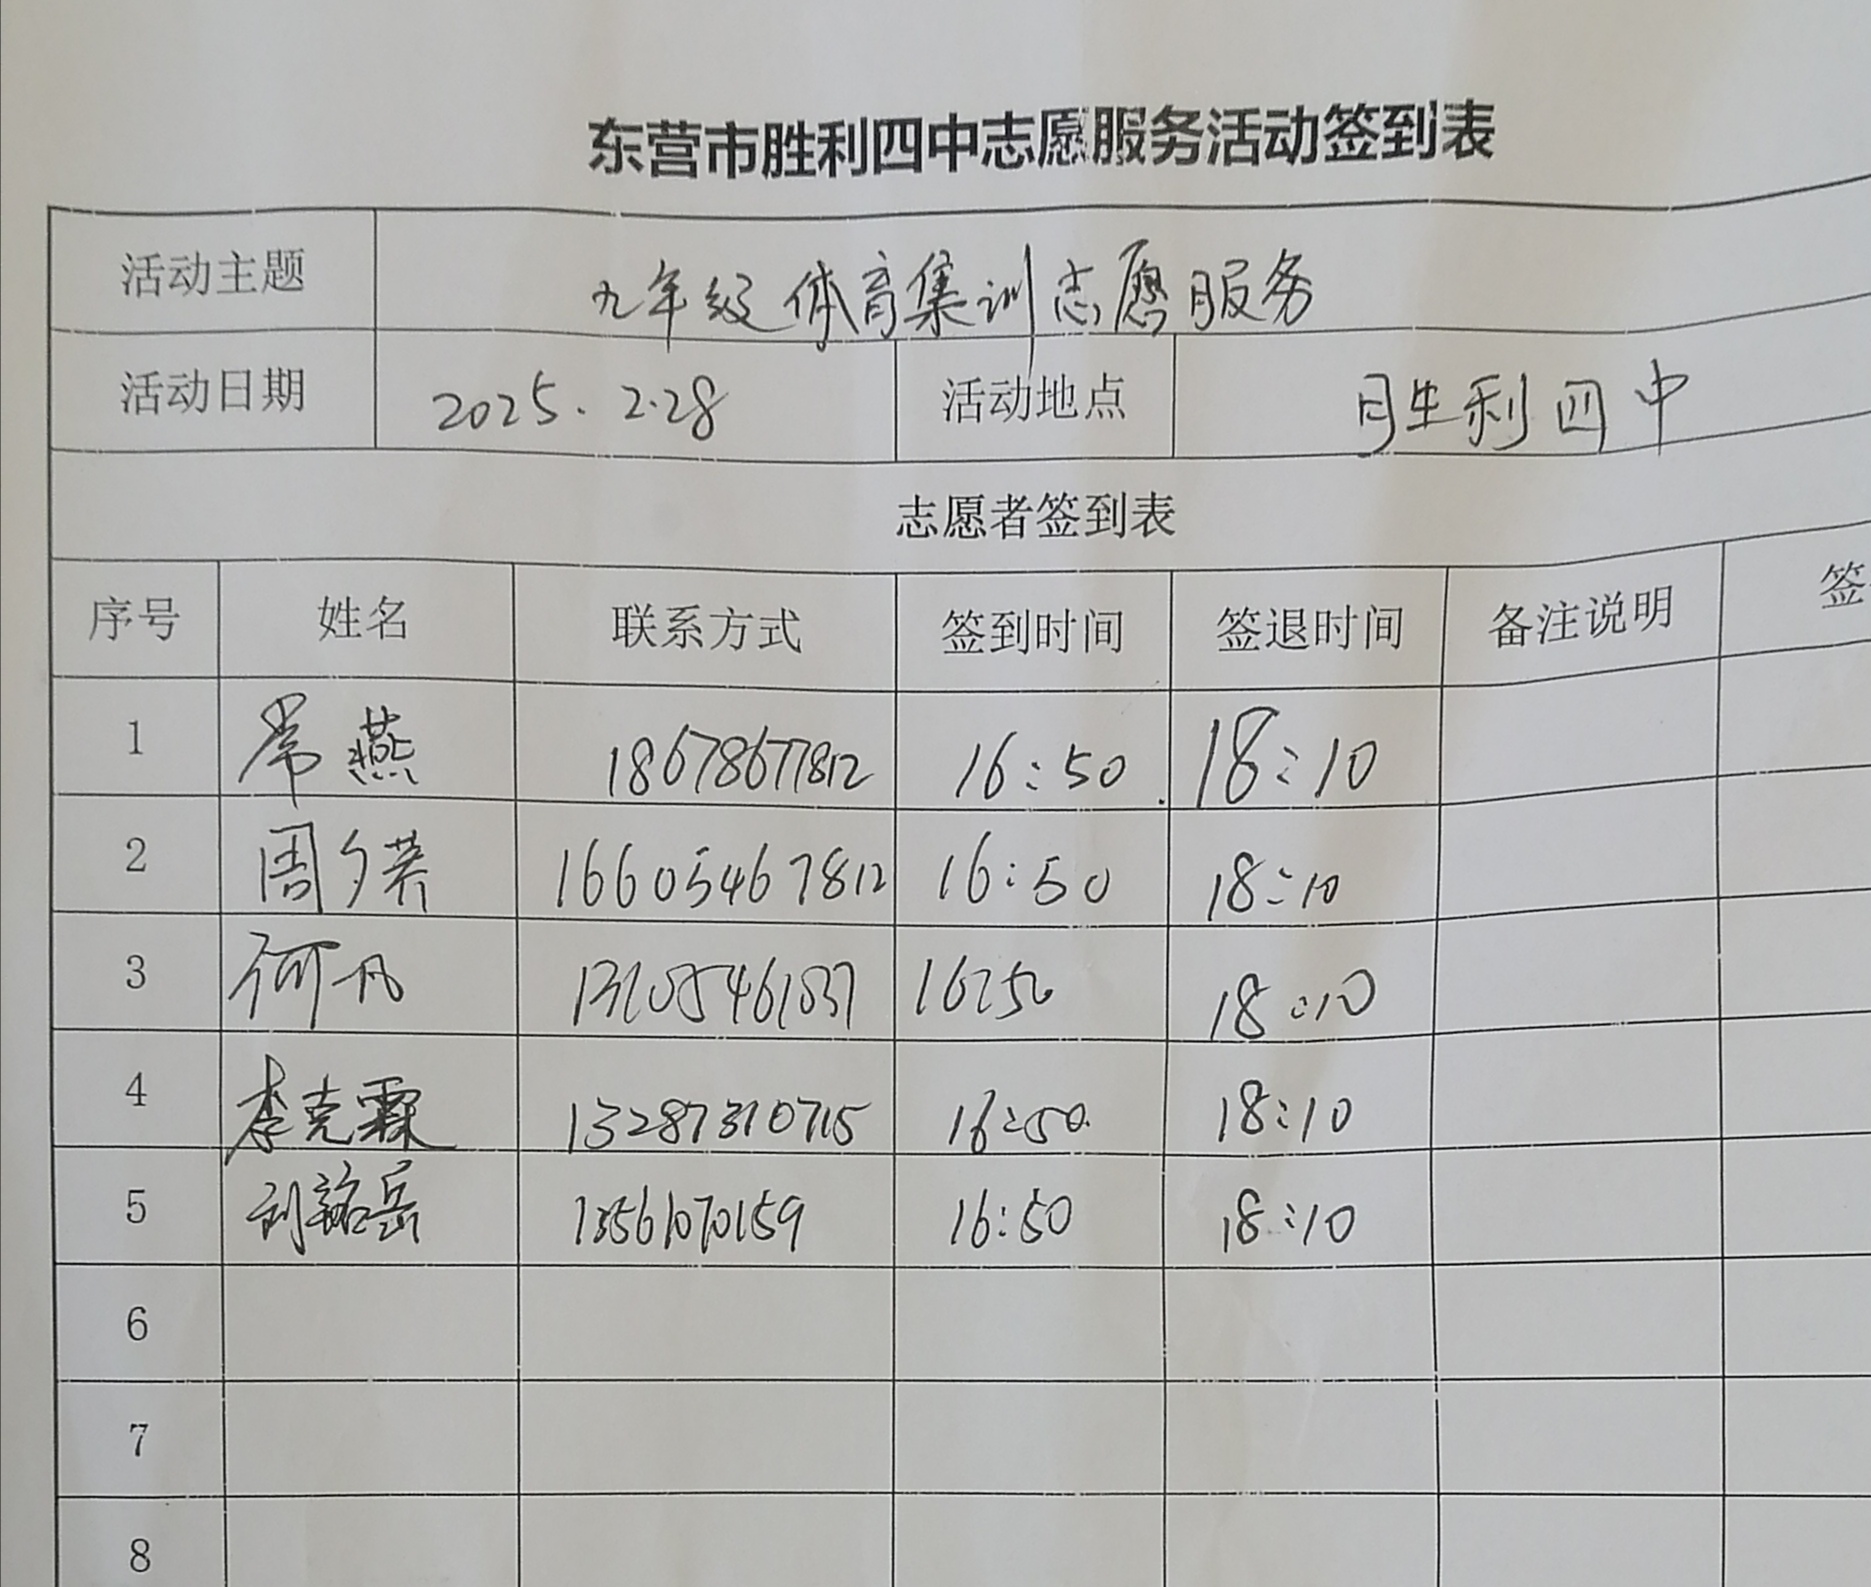 东营市胜利四中志愿服务活动签到表
活动主题 九年级体育集训志愿服务
活动日期 2025.2.28 活动地点 胜利四中
志愿者签到表
序号 姓名 联系方式 签到时间 签退时间 备注说明 签
1 常燕 18678677812 16:50 18:10
2 周夕 16605467812 16:50 18:10
3 何凡 16:50 18:10
4 李克霖 13287310715 16:50 18:10
5 刘岳 13561070159 16:50 18:10
6
7
8